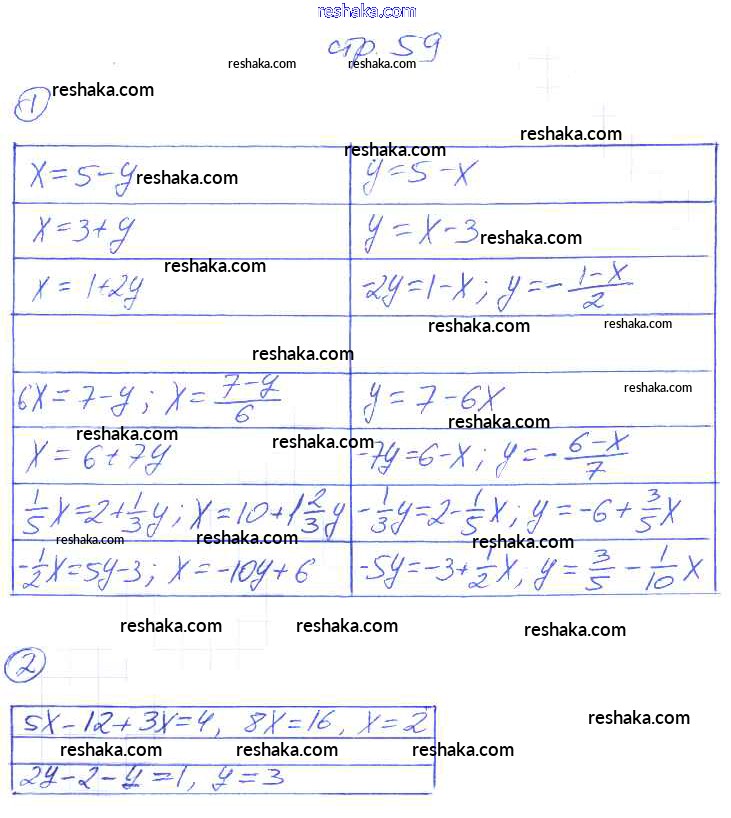 reshaka.com
стр. 59
reshaka.com reshaka.com
1 reshaka.com
reshaka.com
reshaka.com
x = 5 - y reshaka.com y = 5 - x
x = 3 + y y = x - 3 reshaka.com
reshaka.com
x = 1 + 2y -2y = 1 - x; y = - (1-x)/2
reshaka.com reshaka.com
reshaka.com
6x = 7 - y; x = (7-y)/6 y = 7 - 6x reshaka.com
reshaka.com
reshaka.com reshaka.com
x = 6 + 7y -7y = 6 - x; y = - (6-x)/7
1/5 x = 2 + 1/3 y; x = 10 + 1 2/3 y -1/3 y = 2 - 1/5 x; y = -6 + 3/5 x
reshaka.com reshaka.com reshaka.com
-1/2 x = 5y - 3; x = -10y + 6 -5y = -3 + 1/2 x; y = 3/5 - 1/10 x
reshaka.com reshaka.com reshaka.com
2
5x - 12 + 3x = 4, 8x = 16, x = 2 reshaka.com
reshaka.com reshaka.com reshaka.com
2y - 2 - y = 1, y = 3